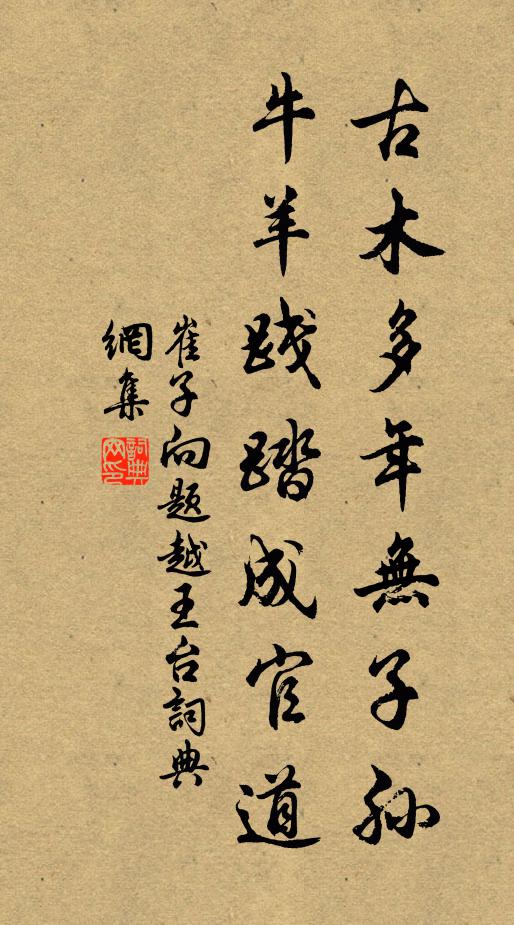 古木多年無子孫
牛羊踐踏成官道
崔子向題越王台詞典
網集
詞典
网印